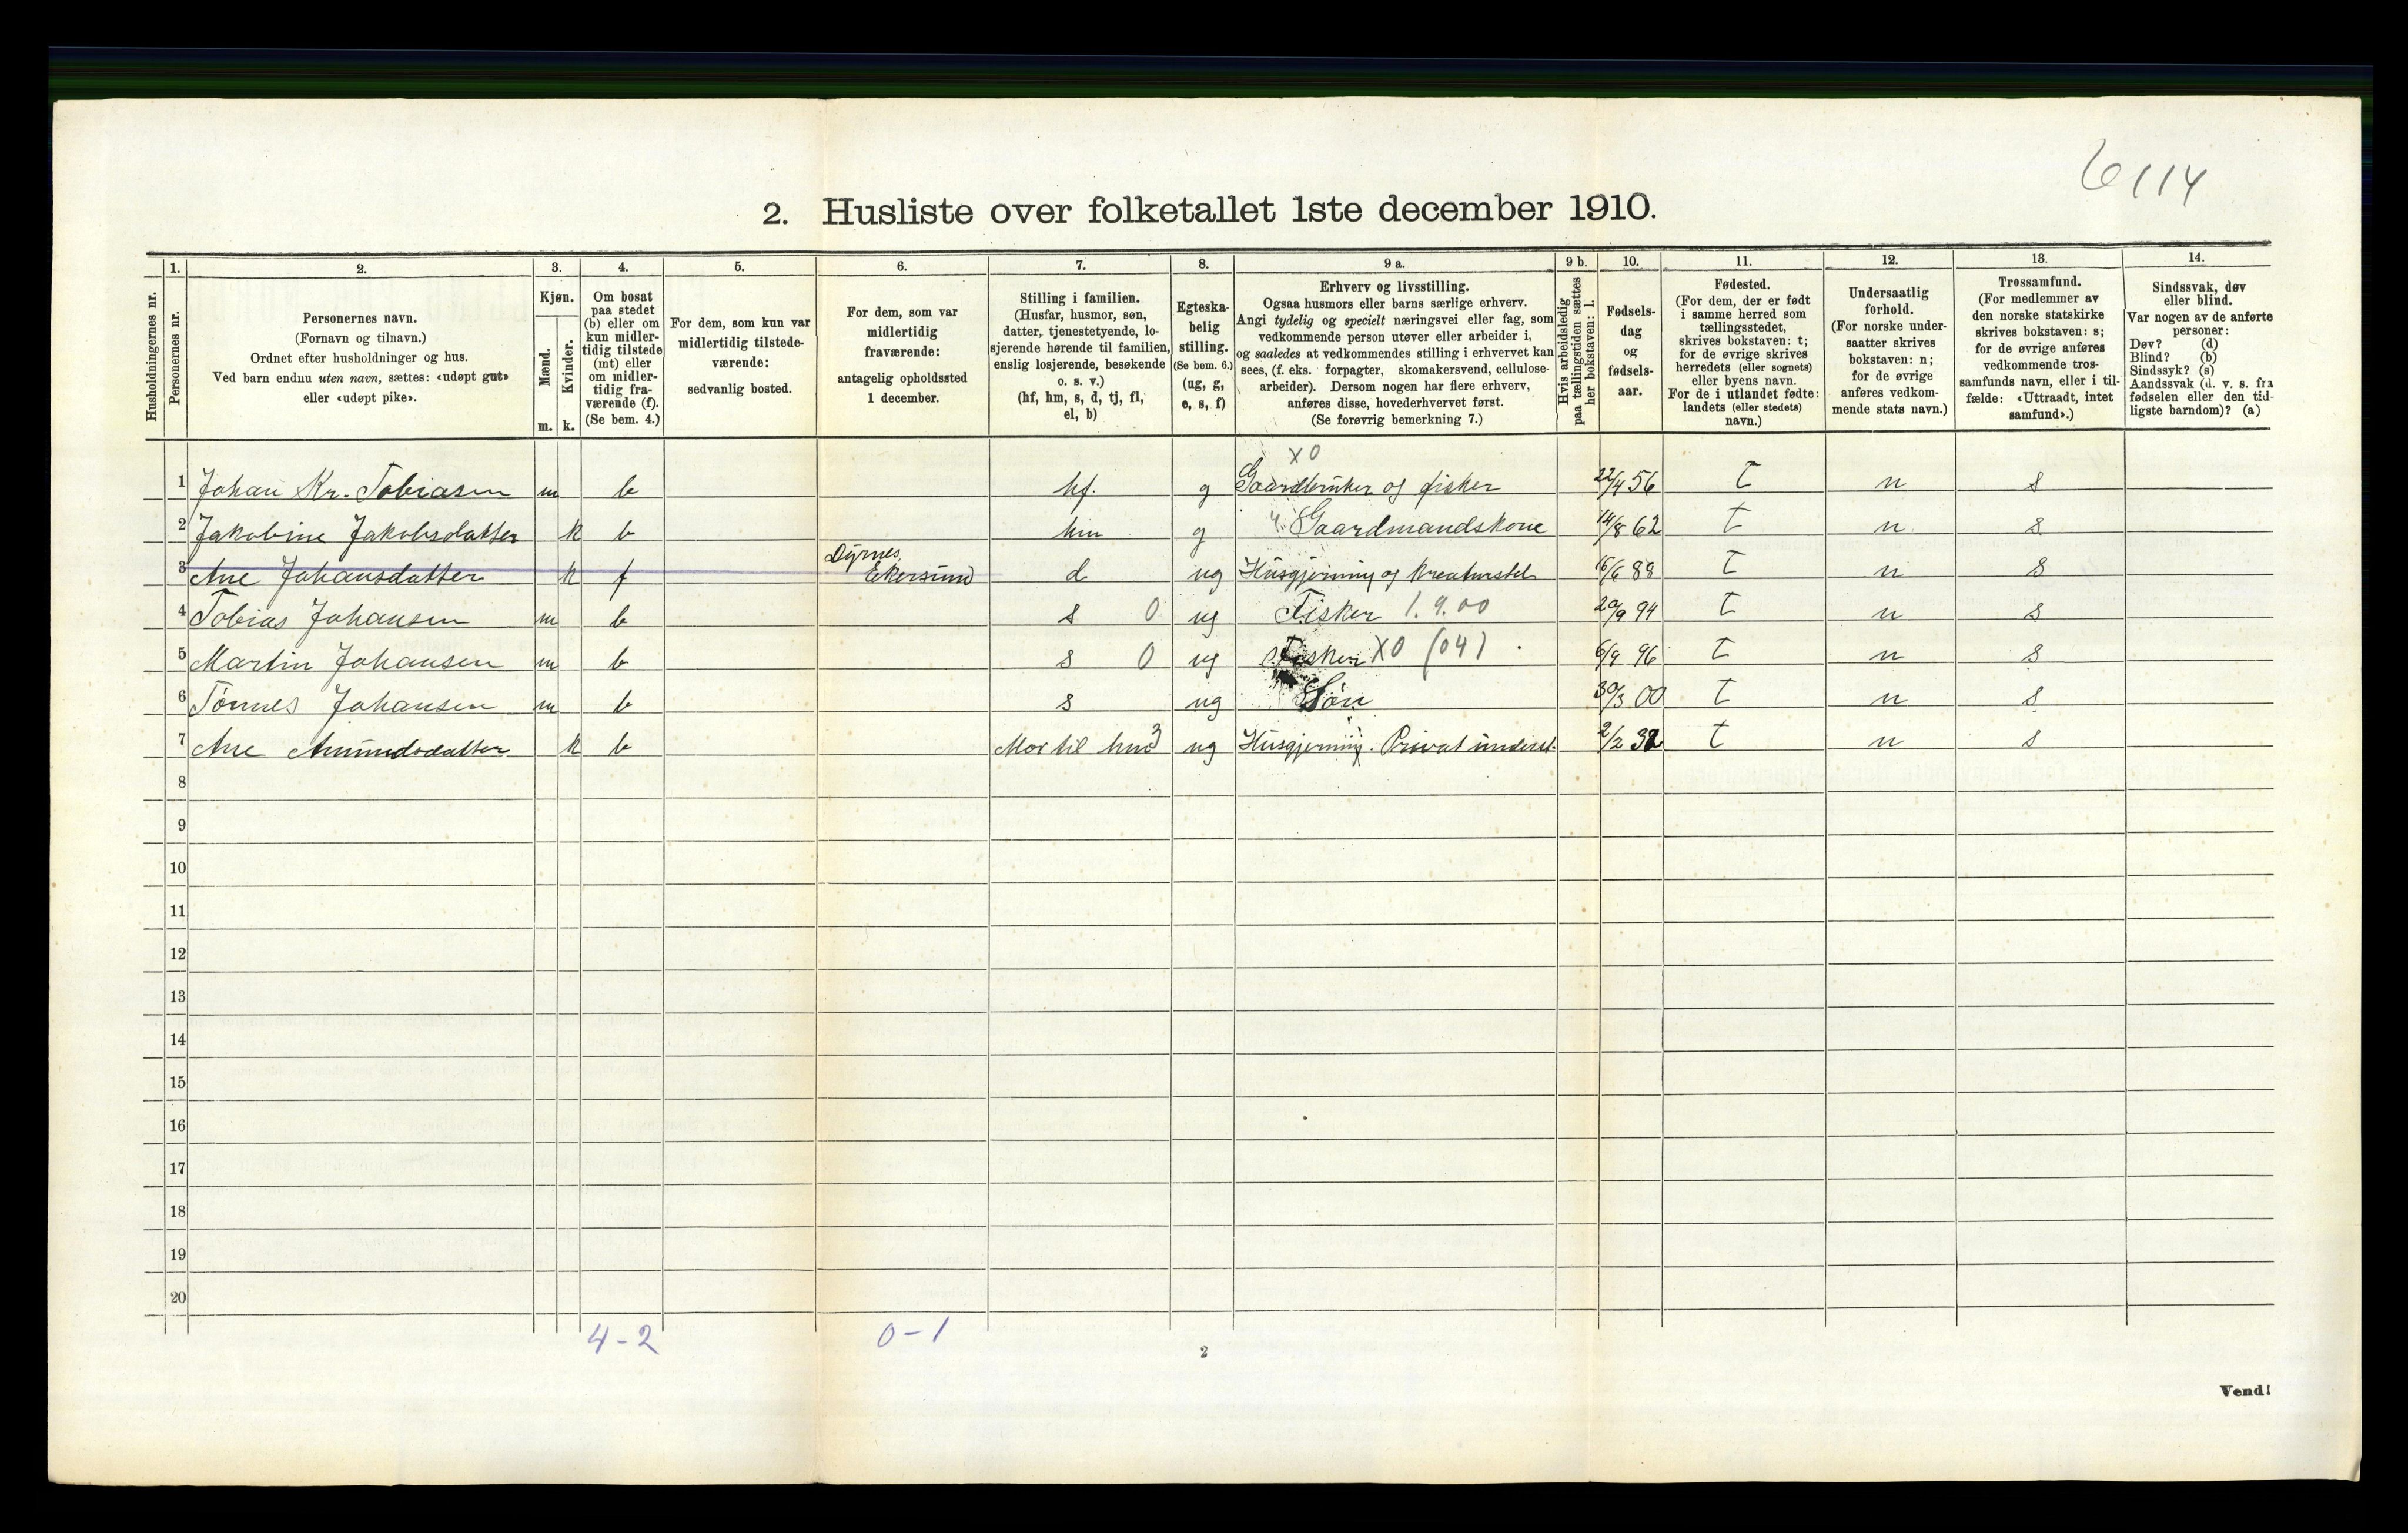 6 114
2. Husliste over folketallet 1ste december 1910.
Husholdningernes nr.
1. Personernes nr.
2. Personernes navn.
(Fornavn og tilnavn.)
Ordnet efter husholdninger og hus.
Ved barn endnu uten navn, sættes: «udøpt gut»
eller «udøpt pike».
3. Kjøn.
Mænd. m.
Kvinder. k.
4. Om bosat
paa stedet
(b) eller om
kun midler-
tidig tilstede
(mt) eller
om midler-
tidig fra-
værende (f).
(Se bem. 4.)
5. For dem, som kun var
midlertidig tilstede-
værende:
sedvanlig bosted.
6. For dem, som var
midlertidig
fraværende:
antagelig opholdssted
1 december.
7. Stilling i familien.
(Husfar, husmor, søn,
datter, tjenestetyende, lo-
sjerende hørende til familien,
enslig losjerende, besøkende
o. s. v.)
(hf, hm, s, d, tj, fl,
el, b)
8. Egteska-
belig
stilling.
(Se bem. 6.)
(ug, g,
e, s, f)
9 a. Erhverv og livsstilling.
Ogsaa husmors eller barns særlige erhverv.
Angi tydelig og specielt næringsvei eller fag, som
vedkommende person utøver eller arbeider i,
og saaledes at vedkommendes stilling i erhvervet kan
sees, (f. eks. forpagter, skomakersvend, cellulose-
arbeider). Dersom nogen har flere erhverv,
anføres disse, hovederhvervet først.
(Se forøvrig bemerkning 7.)
9 b. Hvis arbeidsledig
paa tællingstiden sættes
her bokstaven: l.
10. Fødsels-
dag
og
fødsels-
aar.
11. Fødested.
(For dem, der er født
i samme herred som
tællingsstedet,
skrives bokstaven: t;
for de øvrige skrives
herredets (eller sognets)
eller byens navn.
For de i utlandet fødte:
landets (eller stedets)
navn.)
12. Undersaatlig
forhold.
(For norske under-
saatter skrives
bokstaven: n;
for de øvrige
anføres vedkom-
mende stats navn.)
13. Trossamfund.
(For medlemmer av
den norske statskirke
skrives bokstaven: s;
for de øvrige anføres
vedkommende tros-
samfunds navn, eller i til-
fælde: «Uttraadt, intet
samfund».)
14. Sindssvak, døv
eller blind.
Var nogen av de anførte
personer:
Døv? (d)
Blind? (b)
Sindssyk? (s)
Aandssvak (d. v. s. fra
fødselen eller den tid-
ligste barndom)? (a)
X0
1 Johan Kr. Tobiasen m b hf. g Gaardbruker og fisker 22/4 56 t n s
2 Jakobine Jakobsdatter k b hm g Gaardmandskone 14/8 62 t n s
Dyrnes
3 Ane Johansdatter k f Ekersund d ug Husgjerning og Kreaturstel 16/6 88 t n s
4 Tobias Johansen m b s 0 ug Fisker 1.9.00 20/9 94 t n s
5 Martin Johansen m b s 0 ug Fisker X0 (04) 6/9 96 t n s
6 Tønnes Johansen m b s ug Søn 30/3 00 t n s
7 Ane Amundsdatter k b Mor til hm 3 ug Husgjerning. Privat underst. 2/2 t n s
8
9
10
11
12
13
14
15
16
17
18
19
20
4-2 0-1
2
Vend!